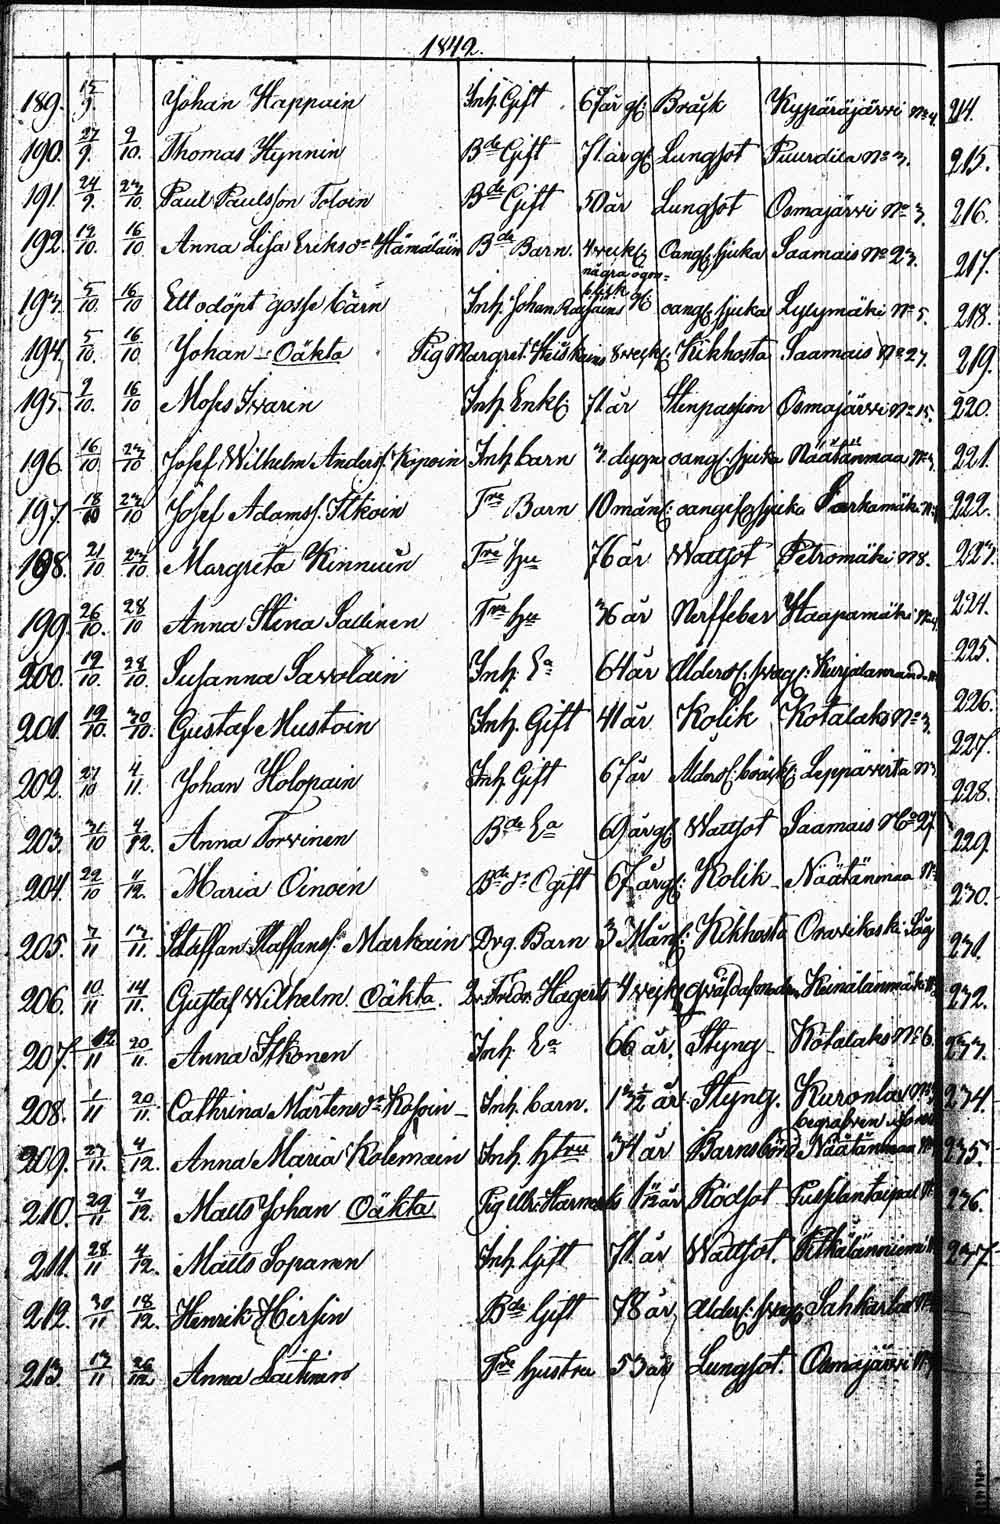 1842.
189. 15/9. Johan Happain Inh. Gift 67 år gl: Bråck Kypäräjärvi No 4. 214.
190. 27/9. 2/10. Thomas Hynnin Bde Gift 71 år gl Lungsot Puurdila No 3. 215.
191. 24/9. 23/10. Paul Paulsson Toloin Bde Gift 50 år Lungsot Osmajärvi No 3. 216.
192. 12/10. 16/10 Anna Lisa Eriksdr Hämäläin Bde Barn. 4 veck: Oang: sjuka Saamais No 23. 217.
några ögon-
blick
193. 5/10. 16/10 Ett odöpt gosse barn Inh. Johan oang: sjuka Lylymäki No 5. 218.
194. 5/10. 16/10 Johan Oäkta Pig Margret: Heiskains 8 veck: Kikhosta Saamais No 27. 219.
195. 2/10. 16/10 Moses Ivarin Inh. Enkl: 71 år Stenpassion Osmajärvi No 15. 220.
196 16/10 23/10 Josef Wilhelm Anders: Kopoin Inh barn 3. dygn oang: sjuka Näätänmaa No 221.
197. 18/10 23/10 Josef Adams: Itkoin Tre Barn 10 mån: oangef: sjuka Sarkamäki No 222.
198. 21/10 23/10 Margreta Kinnuin Tre hu 76 år Wattsot Petromäki No 8. 223.
199. 26/10. 28/10 Anna Stina Sallinen Tre hu 36 år Nerffeber Haapamäki No 4. 224.
200. 19/10. 28/10. Susanna Savolain Inh. Ea 64 år Ålders: svag: Kurjalanranda No 225.
201. 19/10. 30/10. Gustaf Mustoin Inh. Gift 41 år Kolik Kotalaks No 3. 226.
227.
202. 27/10 4/11. Johan Holopain Inh Gift 67 år Ålders: bräckl: Leppävirta No 228.
203. 31/10 4/12. Anna Torvinen Bde Ea 69 år gl. Wattsot Saamais No 27 229.
204. 22/10 4/12. Maria Oinoin Bde dr Ogift 67 år gl: Kolik Näätänmaa No 230.
205. 7/11 13/11. Staffan Staffans: Markain Drg. Barn 3 Mån: Kikhosta Osavikoski Såg 231.
206. 10/11 14/11. Gustaf Wilhelm. Oäkta. Hagerts 4 veck: qwäfd af modren Keinälänmäki No 232.
207. 12/11 20/11. Anna Itkonen Inh. Ea 66 år. Styng Kotalaks No 6. 233.
208. 1/11 20/11. Cathrina Mårtensdr Kosoin Inh. barn. 1 3/12 år Styng. Kuronlax No 234
begrafven i
209. 27/11. 4/12. Anna Maria Kolemain Inh. htru 34 år Barnsbörd Näätänmaa No 235.
210. 29/11 4/12. Matts Johan Oäkta Pig Ulr: år Rödsot Pusplantaipal No 236.
211. 28/11 4/12. Matts Sopanen Inh. Gift 71 år Wattsot. Pitkälänniemi No 237.
212. 30/11 18/12. Henrik Hirsin Bde Gift 78 år Ålders: svag: Sahkarlax No
213. 13/11 26/12 Anna Laitinen Tre hustru 53 år Lungsot. Osmajärvi No